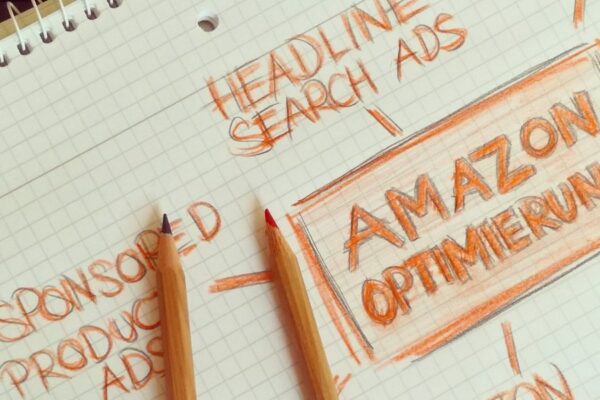 HEADLINE
SEARCH ADS
AMAZON
OPTIMIERUN
SPONSORED
PRODUCT
ADS